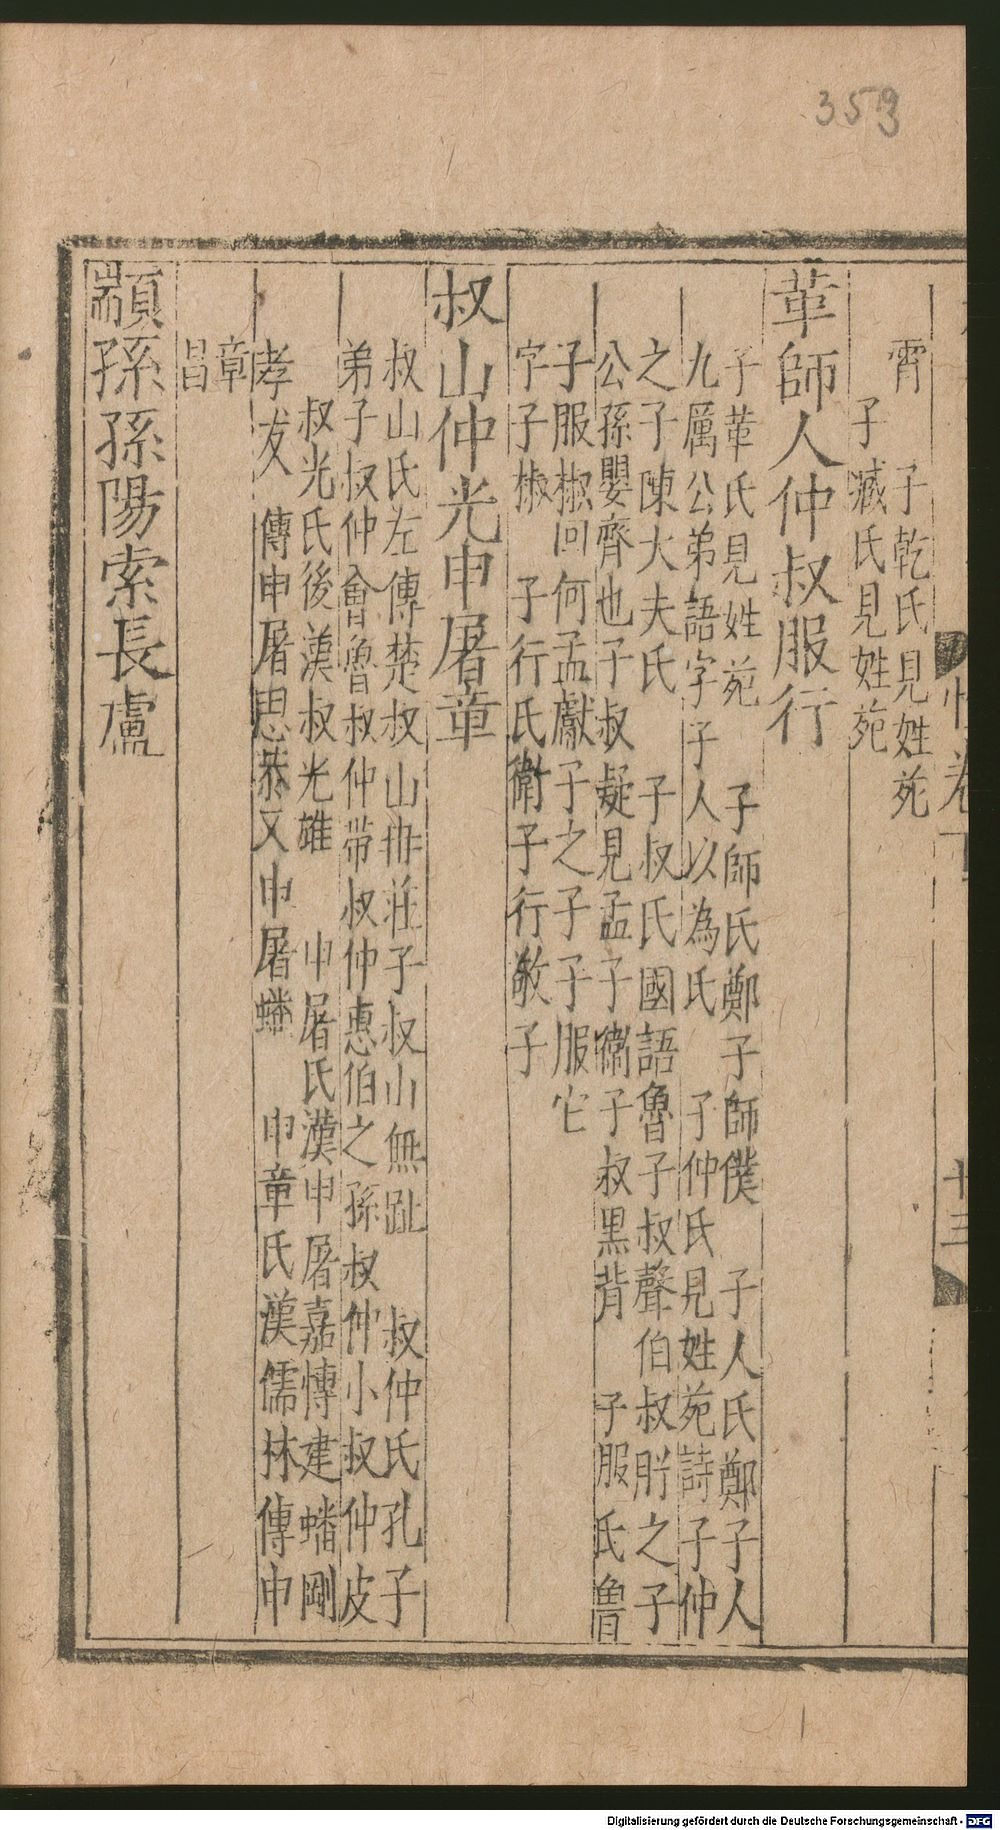 359
霄　子乾氏見姓苑
子臧氏見姓苑
革師人仲叔服行
子革氏見姓苑　子師氏鄭子師僕　子人氏鄭子人
九厲公弟語字子人以為氏　子仲氏見姓苑詩子仲
之子陳大夫氏　子叔氏國語魯子叔聲伯叔肸之子
公孫嬰齊也子叔疑見孟子衛子叔黑背　子服氏魯
子服椒回何孟獻子之子子服它
字子椒　子行氏衛子行敬子
叔山仲光申屠章
叔山氏左傳楚叔山冉莊子叔山無趾　叔仲氏孔子
弟子叔仲會魯叔仲帶叔仲惠伯之孫叔仲小叔仲皮
叔光氏後漢叔光雄　申屠氏漢申屠嘉慱建蟠剛
孝友傳申屠思恭又申屠蟠　申章氏漢儒林傳申
章
昌
顓孫孫陽索長盧
十三
Digitalisierung gefördert durch die Deutsche Forschungsgemeinschaft - DFG